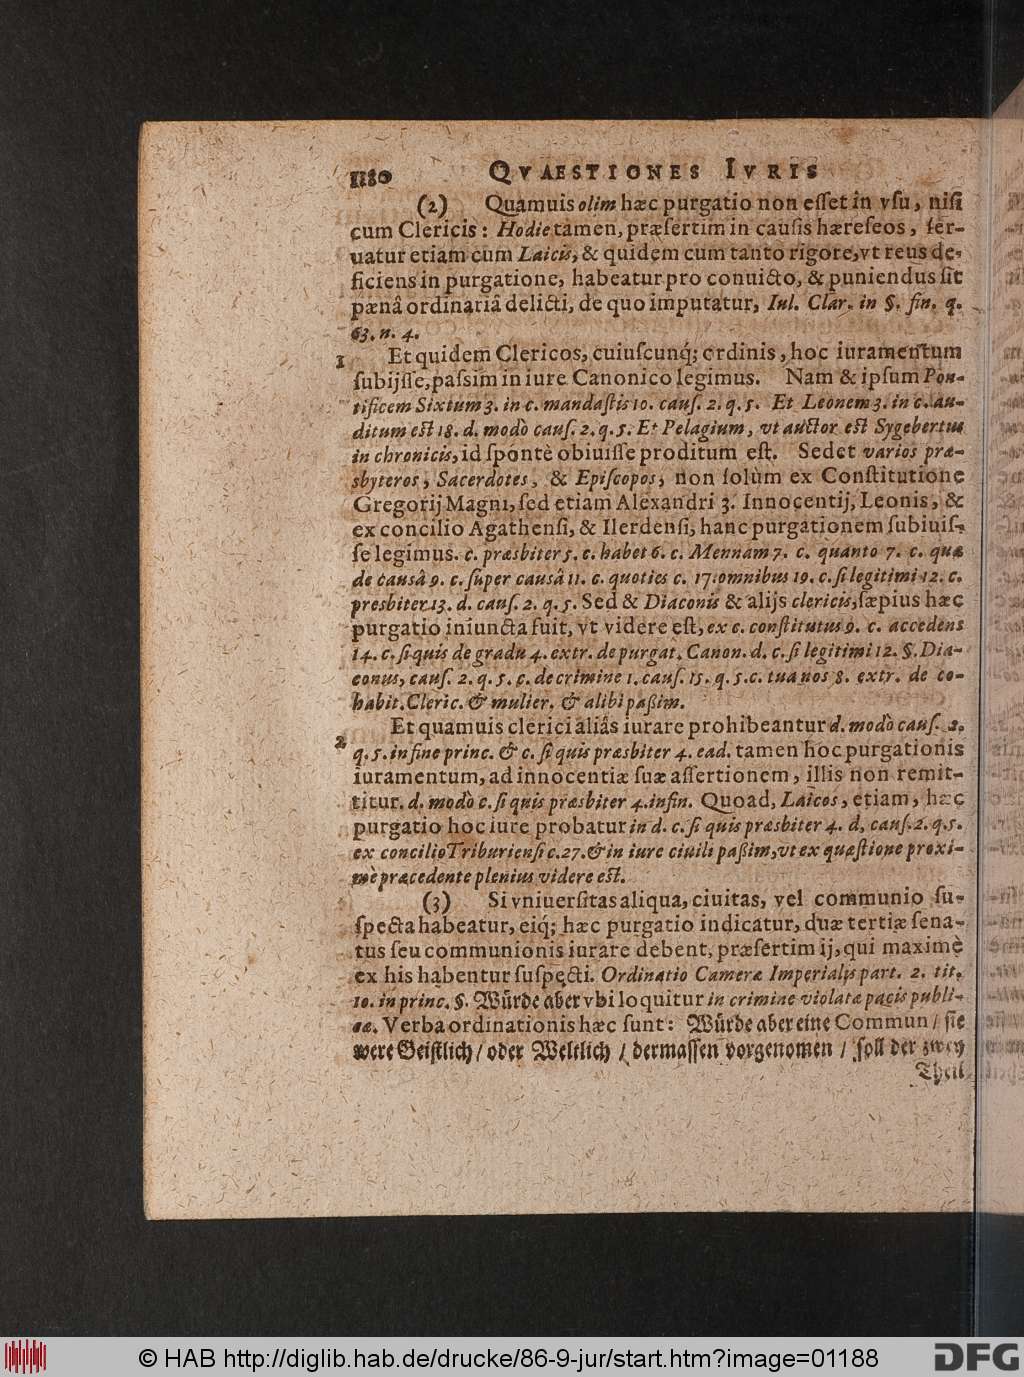 1180 QVAESTIONES IVRIS
(2) Quamuis olim hæc purgatio non eſſet in vſu, niſi
cum Clericis: Hodie tamen, præſertim in cauſis hæreſeos, ſer-
uatur etiam cum Laicis, & quidem cum tanto rigore, vt reus de-
ficiens in purgatione, habeatur pro conuicto, & puniendus ſit
pænâ ordinariâ delicti, de quo imputatur, Iul. Clar. in §. fin. q.
63. n. 4.
1 Et quidem Clericos, cuiuſcunq́; ordinis, hoc iuramentum
ſubijſſe, paſsim in iure Canonico legimus. Nam & ipſum Pon-
tificem Sixtum 3. in c. mandaſtis 10. cauſ. 2. q. 5. Et Leonem 3. in c. au-
ditum eſt 18. d. modò cauſ. 2. q. 5. Et Pelagium, vt auctor eſt Sygebertus
in chronicis, id ſpontè obiuiſſe proditum eſt. Sedet varios præ-
sbyteros, Sacerdotes, & Epiſcopos, non ſolùm ex Conſtitutione
Gregorij Magni, ſed etiam Alexandri 3. Innocentij, Leonis, &
ex concilio Agathenſi, & Ilerdenſi, hanc purgationem ſubiuiſ-
ſe legimus. c. præsbiter 5. c. habet 6. c. Mennam 7. c. quanto 7. c. quæ
de causâ 9. c. ſuper causâ 11. c. quoties c. 17. omnibus 19. c. ſi legitimi 12. c.
presbiter 13. d. cauſ. 2. q. 5. Sed & Diaconis & alijs clericis, ſæpius hæc
purgatio iniuncta fuit, vt videre eſt, ex c. conſtitutus 9. c. accedens
14. c. ſi quis de gradu 4. extr. de purgat. Canon. d. c. ſi legitimi 12. §. Dia-
conus, cauſ. 2. q. 5. c. de crimine 1. cauſ. 15. q. 5. c. tua nos 8. extr. de co-
habit. Cleric. & mulier. & alibi paßim.
2 Et quamuis clerici aliâs iurare prohibeantur d. modò cauſ. 2.
q. 5. in fine princ. & c. ſi quis præsbiter 4. ead. tamen hoc purgationis
iuramentum, ad innocentiæ ſuæ aſſertionem, illis non remit-
titur. d. modò c. ſi quis præsbiter 4. infin. Quoad, Laicos, etiam, hæc
purgatio hoc iure probatur in d. c. ſi quis præsbiter 4. d. cauſ. 2. q. 5.
ex concilio Triburienſi c. 27. & in iure ciuili paßim, vt ex quæſtione proxi-
mè præcedente plenius videre eſt.
(3) Si vniuerſitas aliqua, ciuitas, vel communio ſu-
ſpecta habeatur, eiq́; hæc purgatio indicatur, duæ tertiæ ſena-
tus ſeu communionis iurare debent, præſertim ij, qui maximè
ex his habentur ſuſpecti. Ordinatio Cameræ Imperialis part. 2. tit.
10. in princ. §. Würde aber vbi loquitur in crimine violatæ pacis publi-
cæ. Verba ordinationis hæc ſunt: Würde aber eine Commun / ſie
were Geiſtlich / oder Weltlich / dermaſſen vorgenomen / ſoll der zwey
Theil
© HAB http://diglib.hab.de/drucke/86-9-jur/start.htm?image=01188
DFG